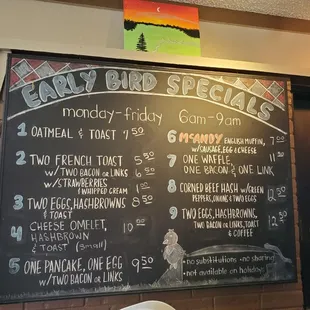 EARLY BIRD SPECIALS
monday-friday 6am-9am
1 OATMEAL & TOAST 7.50
2 TWO FRENCH TOAST 5.50
W/ TWO BACON OR LINKS 6.50
W/ STRAWBERRIES
& WHIPPED CREAM 1.50
3 TWO EGGS, HASHBROWNS 8.50
& TOAST
4 CHEESE OMELET, 10.00
HASHBROWN
& TOAST (small)
5 ONE PANCAKE, ONE EGG 9.50
W/ TWO BACON OR LINKS
6 McANDY ENGLISH MUFFIN, 7
W/ SAUSAGE, EGG & CHEESE
7 ONE WAFFLE, 11
ONE BACON & ONE LINK
8 CORNED BEEF HASH W/ GREEN
PEPPERS, ONIONS & TWO EGGS 12.50
9 TWO EGGS, HASHBROWNS, 12.50
TWO BACON OR LINKS, TOAST
& COFFEE
no substitutions - no sharing
- not available on holidays